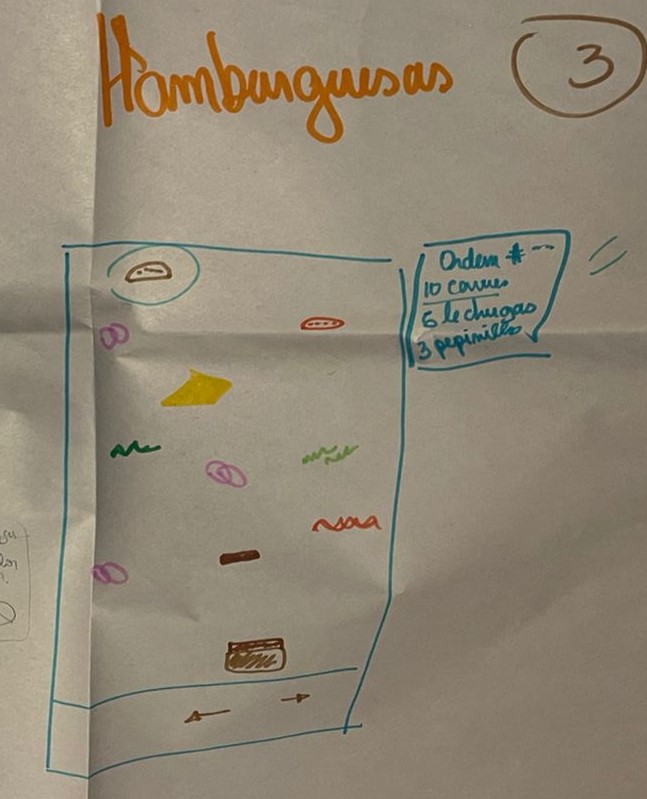 Hamburguesas
3
Ordem # --
10 carnes
6 lechugas
3 pepinillos